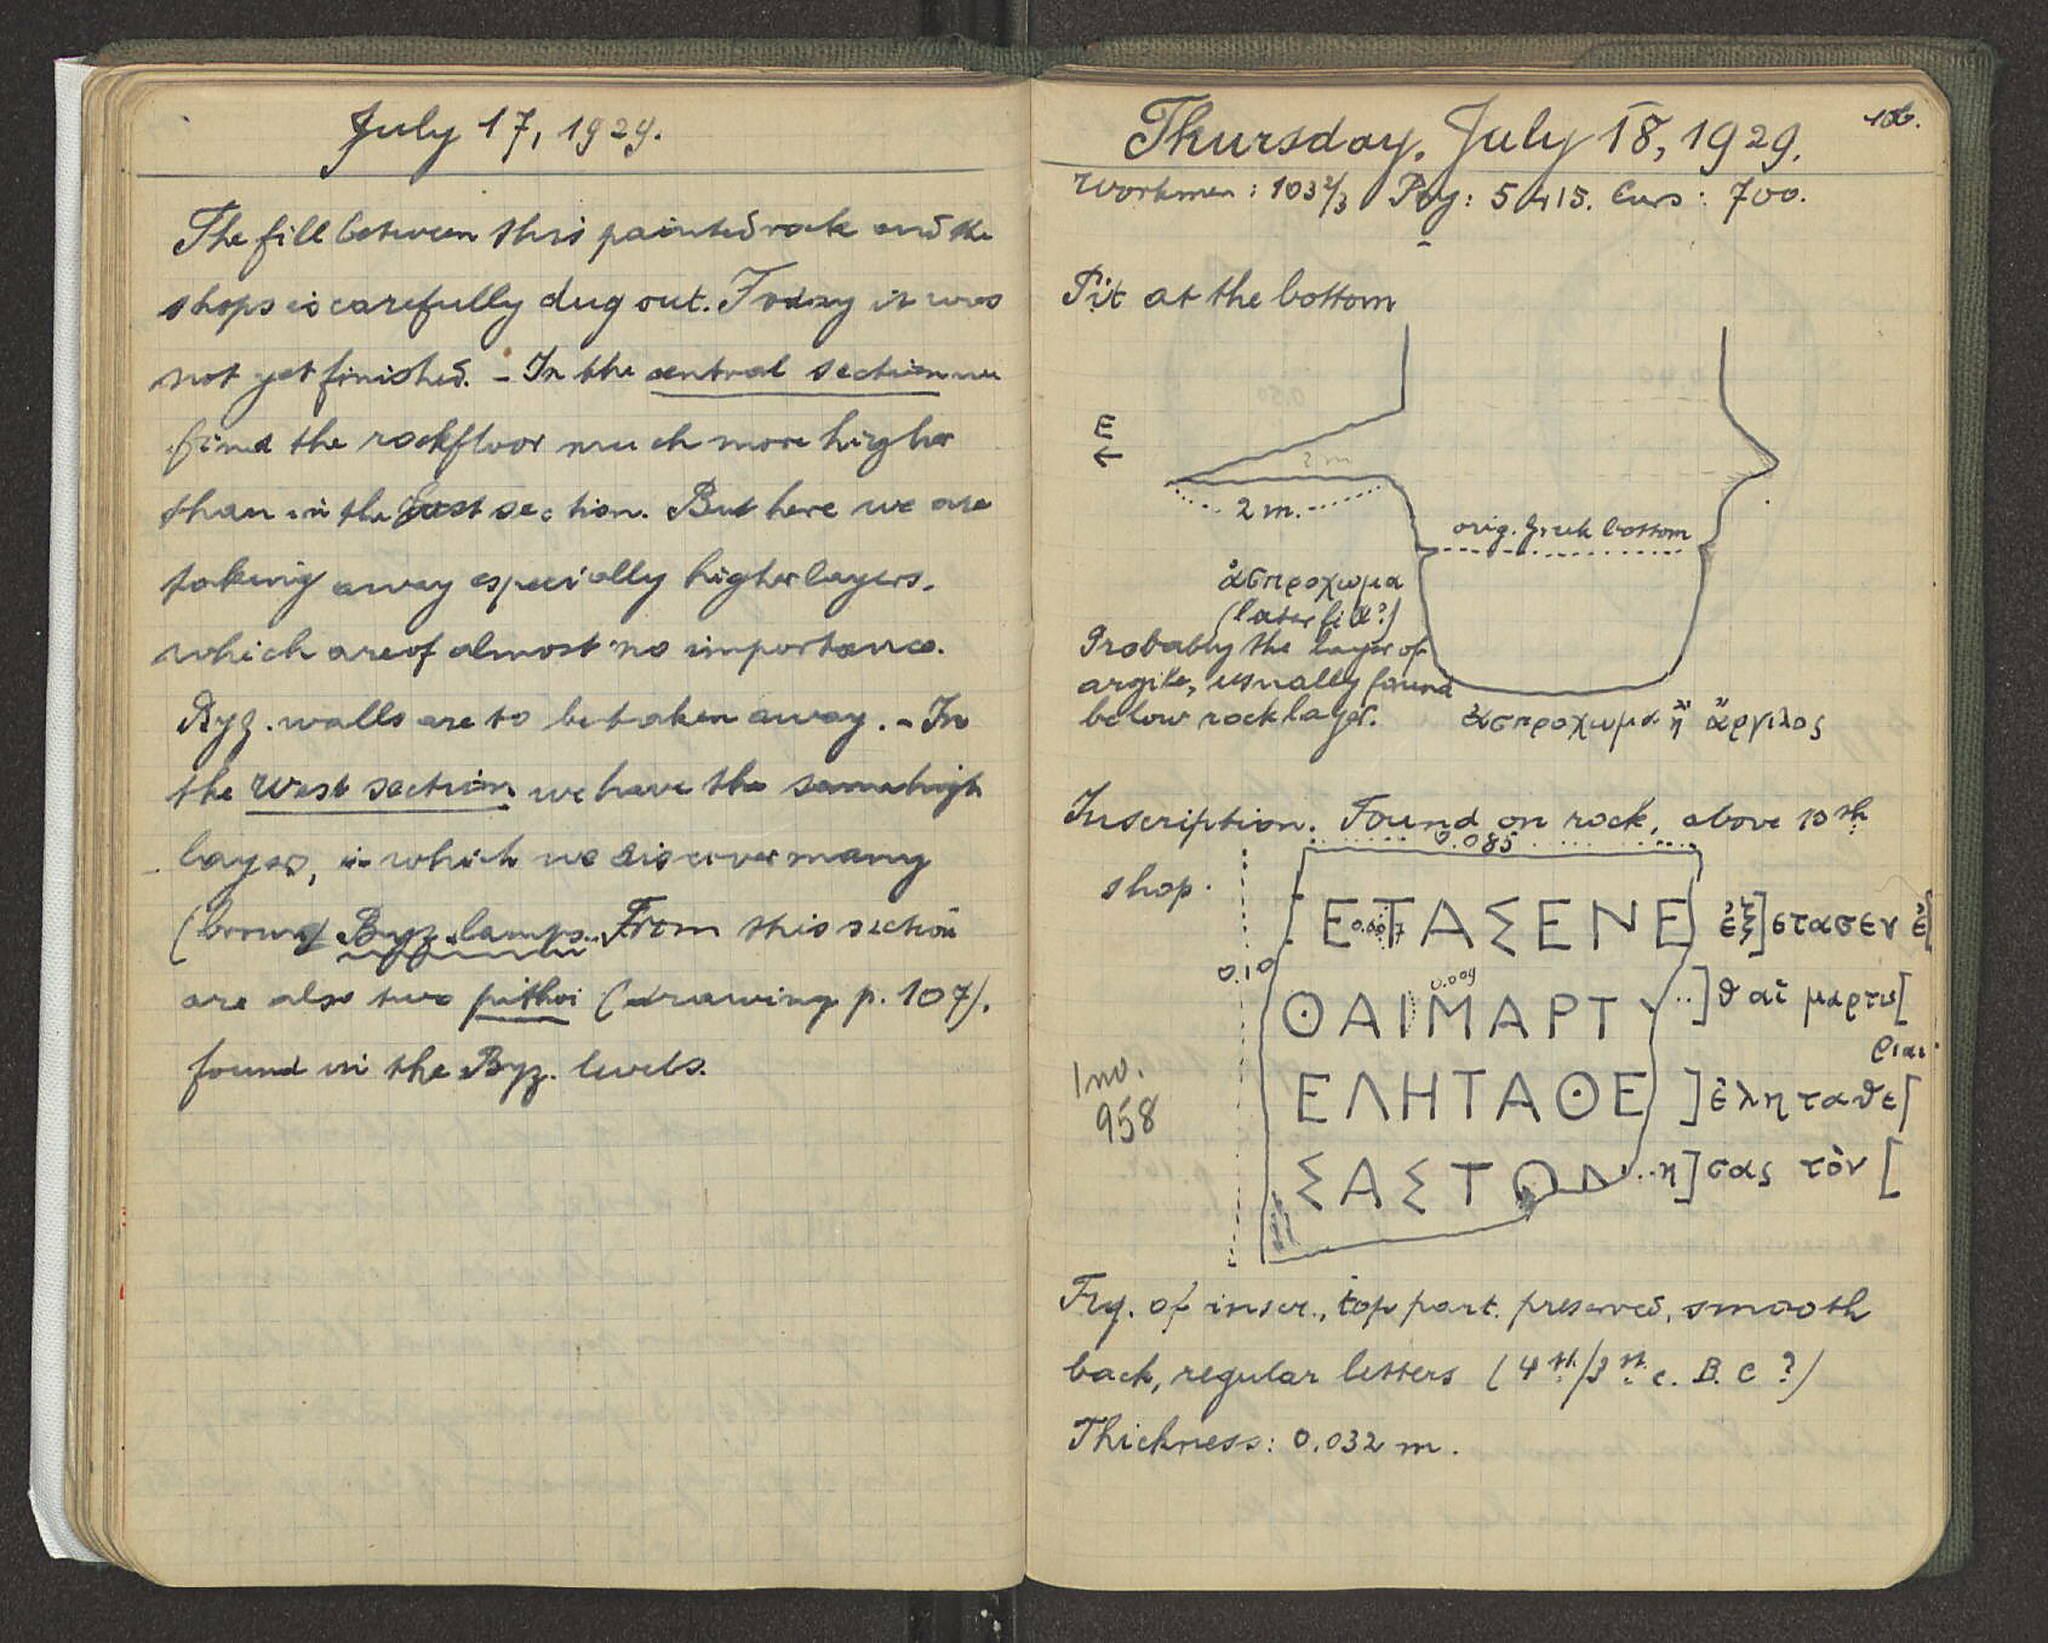 July 17, 1929.
The fill between this painted rock and the
shops is carefully dug out. Today it was
not yet finished. - In the central section we
find the rockfloor much more higher
than in the East section. But here we are
taking away especially higher layers,
which are of almost no importance.
Byz. walls are to be taken away. - In
the West section we have the same high
layer, in which we discover many
Byz. lamps. From this section
are also two pithoi (drawing p. 107),
found in the Byz. levels.
106.
Thursday, July 18, 1929.
Workmen: 103 2/3 Pay: 5415. Cars: 700.
Pit at the bottom
E
←
2 m
2 m.
orig. Greek bottom
ἀσπροχωμα
(later fill?)
Probably the layer of
argile, usually found
below rock layer.
ἀσπροχωμα ἢ ἄργιλος
Inscription. Found on rock, above 10th
shop.
0.085
0.10
ΕΤΑΣΕΝΕ
0.007
ἐξ]έτασεν ἐ[
0.009
ΘΑΙΜΑΡΤΥ
..]θαι μαρτυ[
ριαι
Inv.
958
ΕΛΗΤΑΘΕ
]ἐληταθε[
ΣΑΣΤΟΝ
..η]σας τὸν [
Frg. of inscr., top part. preserved, smooth
back, regular letters (4th/3rd c. B.C?)
Thickness: 0.032 m.